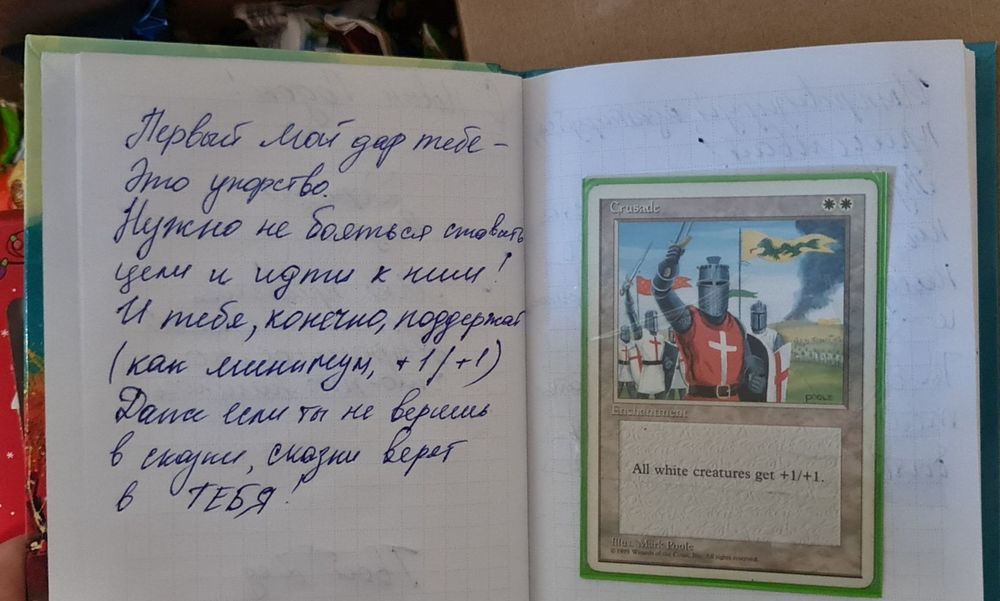 Первый мой дар тебе –
Это упорство.
Нужно не бояться ставить
цели и идти к ним!
И тебя, конечно, поддержат
(как минимум, +1/+1)
Даже если ты не веришь
в сказки, сказки верят
в ТЕБЯ!
Crusade
POOLE
Enchantment
All white creatures get +1/+1.
Illus. Mark Poole
© 1995 Wizards of the Coast, Inc. All rights reserved.